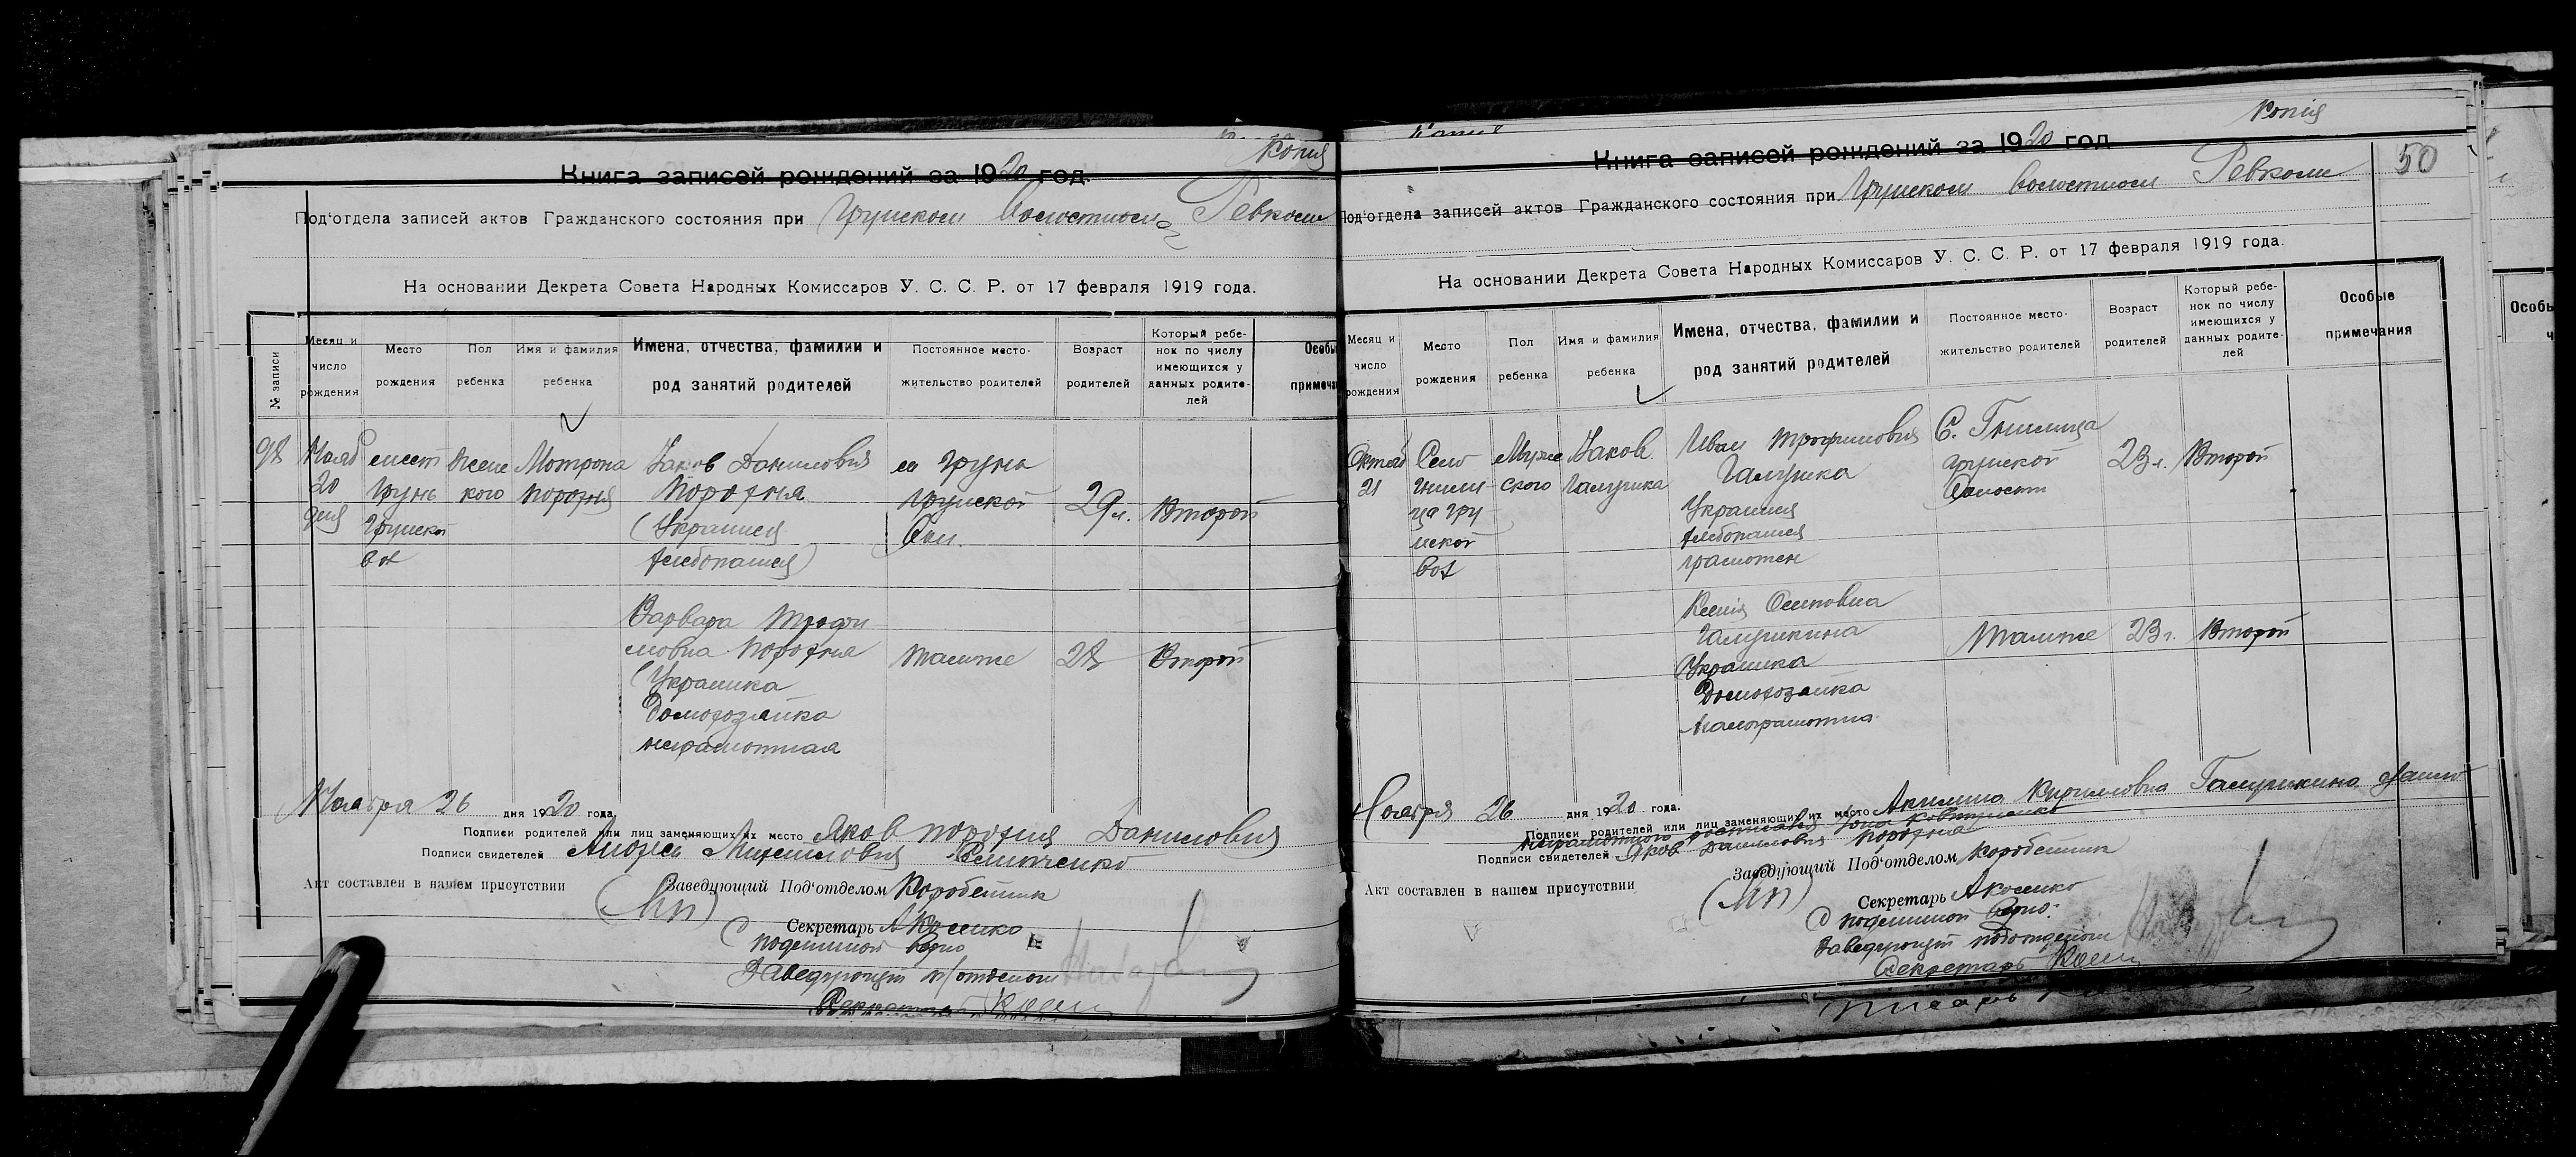 Копия
Книга записей рождений за 1920 год.
Под'отдела записей актов Гражданского состояния при Грунском Волостном Ревкоме
На основании Декрета Совета Народных Комиссаров У. С. С. Р. от 17 февраля 1919 года.
№ записи
Месяц и число рождения
Место рождения
Пол ребенка
Имя и фамилия ребенка
Имена, отчества, фамилии и род занятий родителей
Постоянное место-жительство родителей
Возраст родителей
Который ребе-нок по числу имеющихся у данных родите-лей
Особы
примеча
98
Нояб
20
дня
мест
Грунь
Грунской
вол
Женс
кого
Мотрона
Порохня
Яков Данилович
Порохня
(Украинец
хлебопашец)
м Грунь
Грунской
Вол.
29 л.
Второй
Варвара Трофи
мовна Порохня
(Украинка
Домохозяйка
неграмотная
Таможе
28
Второй
Ноября 26 дня 1920 года
Подписи родителей или лиц заменяющих их место Яков Порохня Данилович
Подписи свидетелей Михайлович
Акт составлен в нашем присутствии
(МП)
Заведующий Под'отделом Коробейник
Секретарь
С подлинной верно
Заведующий п/отделом
Секретарь
Копія
Книга записей рождений за 1920 год
50
Под'отдела записей актов Гражданского состояния при Грунском Волостном Ревкоме
На основании Декрета Совета Народных Комиссаров У. С. С. Р. от 17 февраля 1919 года.
Месяц и число рождения
Место рождения
Пол ребенка
Имя и фамилия ребенка
Имена, отчества, фамилии и род занятий родителей
Постоянное место-жительство родителей
Возраст родителей
Который ребе-нок по числу имеющихся у данных родите-лей
Особые примечания
Особы
Октяб
21
Село
Гнили
ца Гру
нской
вол
Муже
ского
Яков
Галушка
Иван Трофимович
Галушка
Украинец
хлебопашец
грамотен
С. Гнилица
Грунской
Волости
23 л.
Второй
Ксенія Осиповна
Галушкина
Украинка
Домохозяйка
малограмотна
Таможе
23 г.
Второй
Ноября 26 дня 1920 года.
Подписи родителей или лиц заменяющих их место Акилина Кирилловна Галушкина
неграмотного росписался
Подписи свидетелей Яков Данилович Порохня
Акт составлен в нашем присутствии
(МП)
Заведующий Под'отделом Коробейник
Секретарь
С подлинной верно:
Заведующий подотделом
Секретарь
Писарь